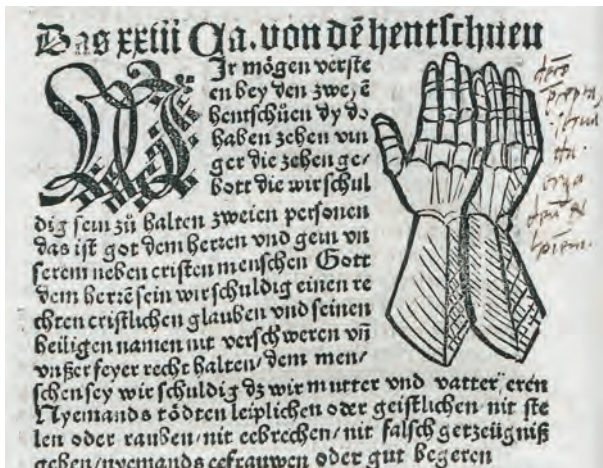 Das xxiii Ca. von dē hentschuen
Wir mögen verste
en bey den zweyē
hentschůen dy do
haben zehen vin
ger die zehen ge⸗
bott die wir schul
dig sein zů halten zweien personen
das ist got dem herren vnd gein vn
serem neben cristen menschen Gott
dem herrē sein wir schuldig einen re
chten cristlichen glauben vnd seinen
heiligen namen nit verschweren vñ
vnßer feyer recht halten/ dem men⸗
schen sey wir schuldig dz wir mutter vnd vatter eren
Nyemands tödten leiplichen oder geistlichen nit ste
len oder rauben/ nit eebrechen/ nit falsch getzeügniß
geben/ nyemands eefrauwen oder gut begeren